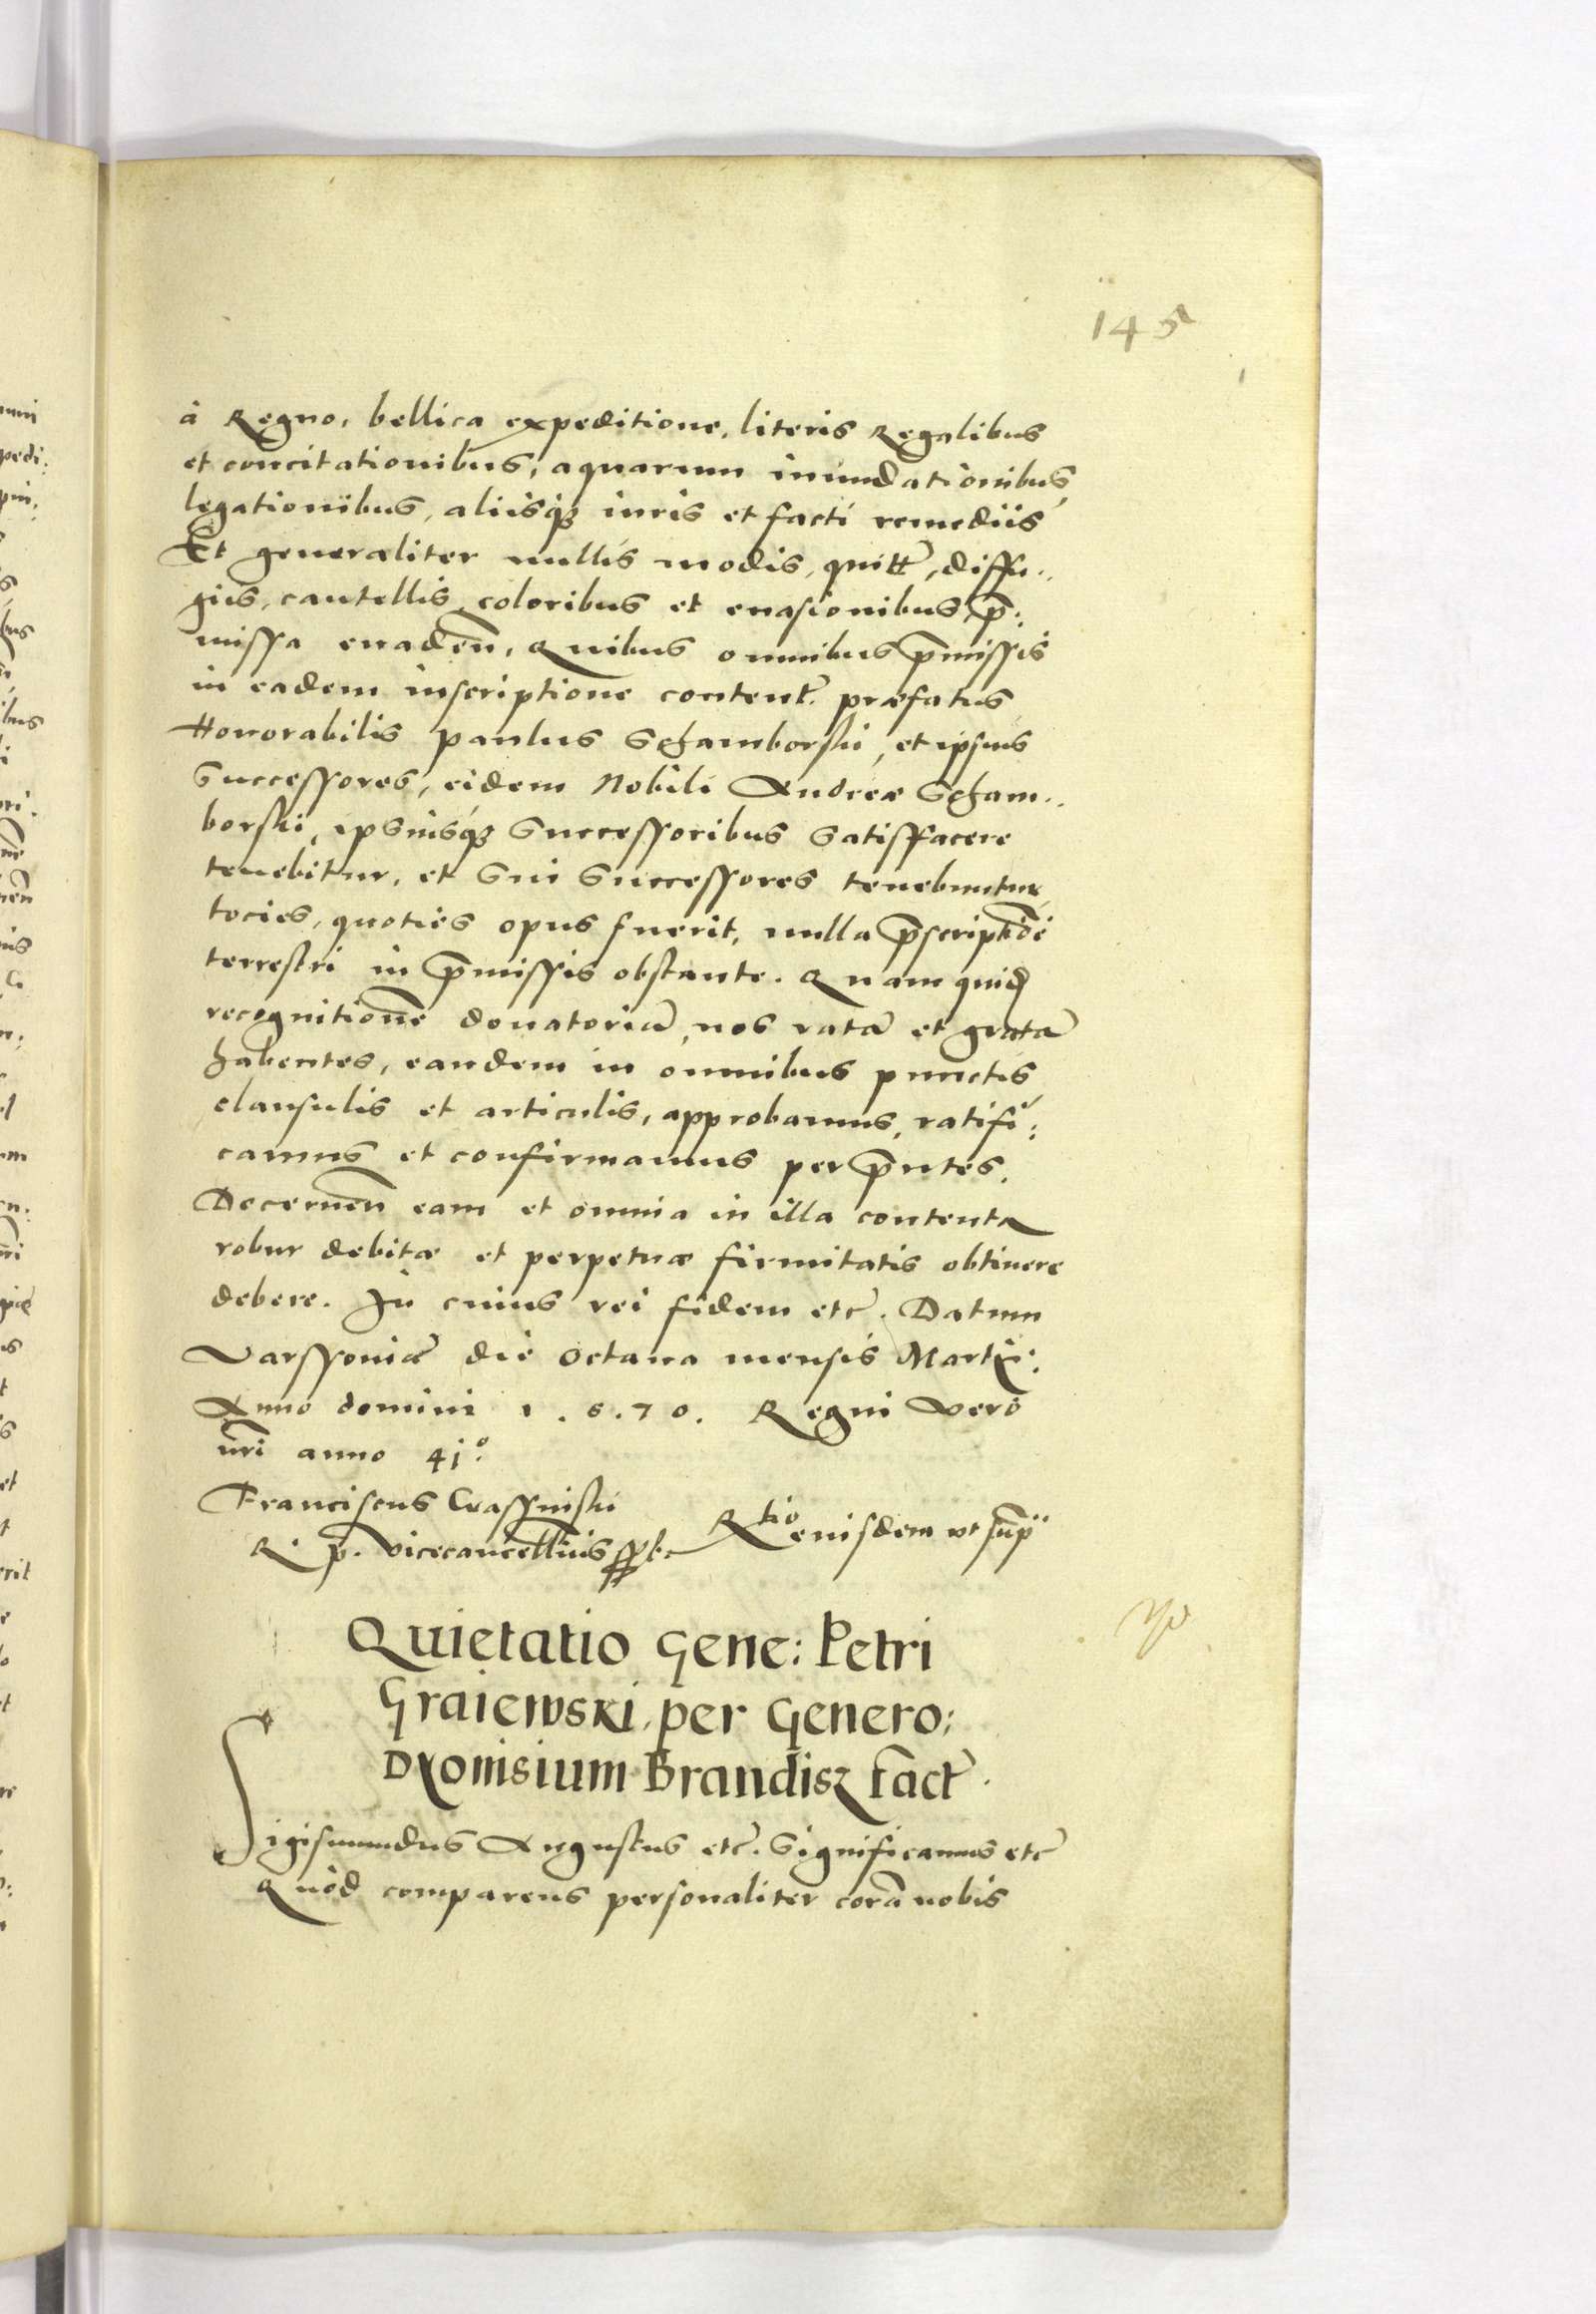 145
à Regno, bellica expeditione, literis Regalibus
et concitationibus, aquarum inundationibus,
legationibus, aliisq3 iuris et facti remediis
Et generaliter nullis modis, quitt̃, diffu..
giis, cautellis, coloribus et euasionibus p̃:
missa euadeñ, Quibus omnibus p̃missis
in eadem inscriptione content̃. præfatus
Honorabilis Paulus Schamborski, et ipsius
Successores, eidem Nobili Andreæ Scham..
borski, ipsiusq3 Successoribus Satisffacere
tenebitur, et Sui Successores tenebuntur,
tocies, quoties opus fuerit, nulla p̃scriptiõe
terrestri in p̃missis obstante. Quam quid
recognitionẽ donatoriã, nos ratã et gratã
habentes, eandem in omnibus punctis,
clausulis et articulis, approbamus, ratifi:
camus et confirmamus per p̃ntes.
Decerneñ eam et omnia in illa contenta
robur debitæ et perpetuæ firmitatis obtinere
debere. In cuius rei fidem etc̃. Datum
Varssoniæ die Octaua mensis Martii:
Anno domini 1.5.70. Regni vero
nr̃i anno 41º.
Franciscus Crassinski
R. p. vicecancellrius sspt.
Rtio eiusdem vt sup̃
Quietatio Gene: Petri
Graiewski, per Genero:
Dyonisium Brandisz fact̃.
Sigismundus Augustus etc̃. Significamus etc̃
Quòd comparens personaliter corã nobis